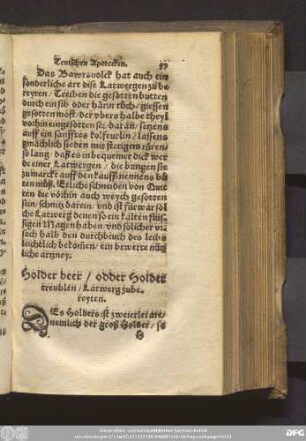 Teutschen Apotecken. 57
Das Bawrsvolck hat auch ein
sonderliche art dise Latwergen zů be
reyten / Treiben die gesotten butten
durch ein sib oder härin tůch / giessen
gesotten möst / der vber halbe theyl
vorhin eingesotten sei / daran / setzens
auff ein sanfftes kolfeurlin / lassens
gmächlich sieden mit stetigem rüren /
so lang / daß es inbequemer dick wer
de einer Latwergen / die bringen sie
zu marckt auff den kauff / nennens bů
ttenmůß. Etliche schneiden von Quit
ten die vorhin auch weych gesotten
sein / schnitz darein / vnd ist fürwar sol
che Latwerg denen so ein kalten flüs
sigen Magen haben / vnd solicher vr
sach halb den durchbruch des leibs
leichtlich bekomen / ein bewerte nütz
liche artzney.
Holder beer / odder Holder
treublen / Latwerg zube
reyten.
DEs Holders ist zweierlei art /
nemlich der groß Holder / so
H